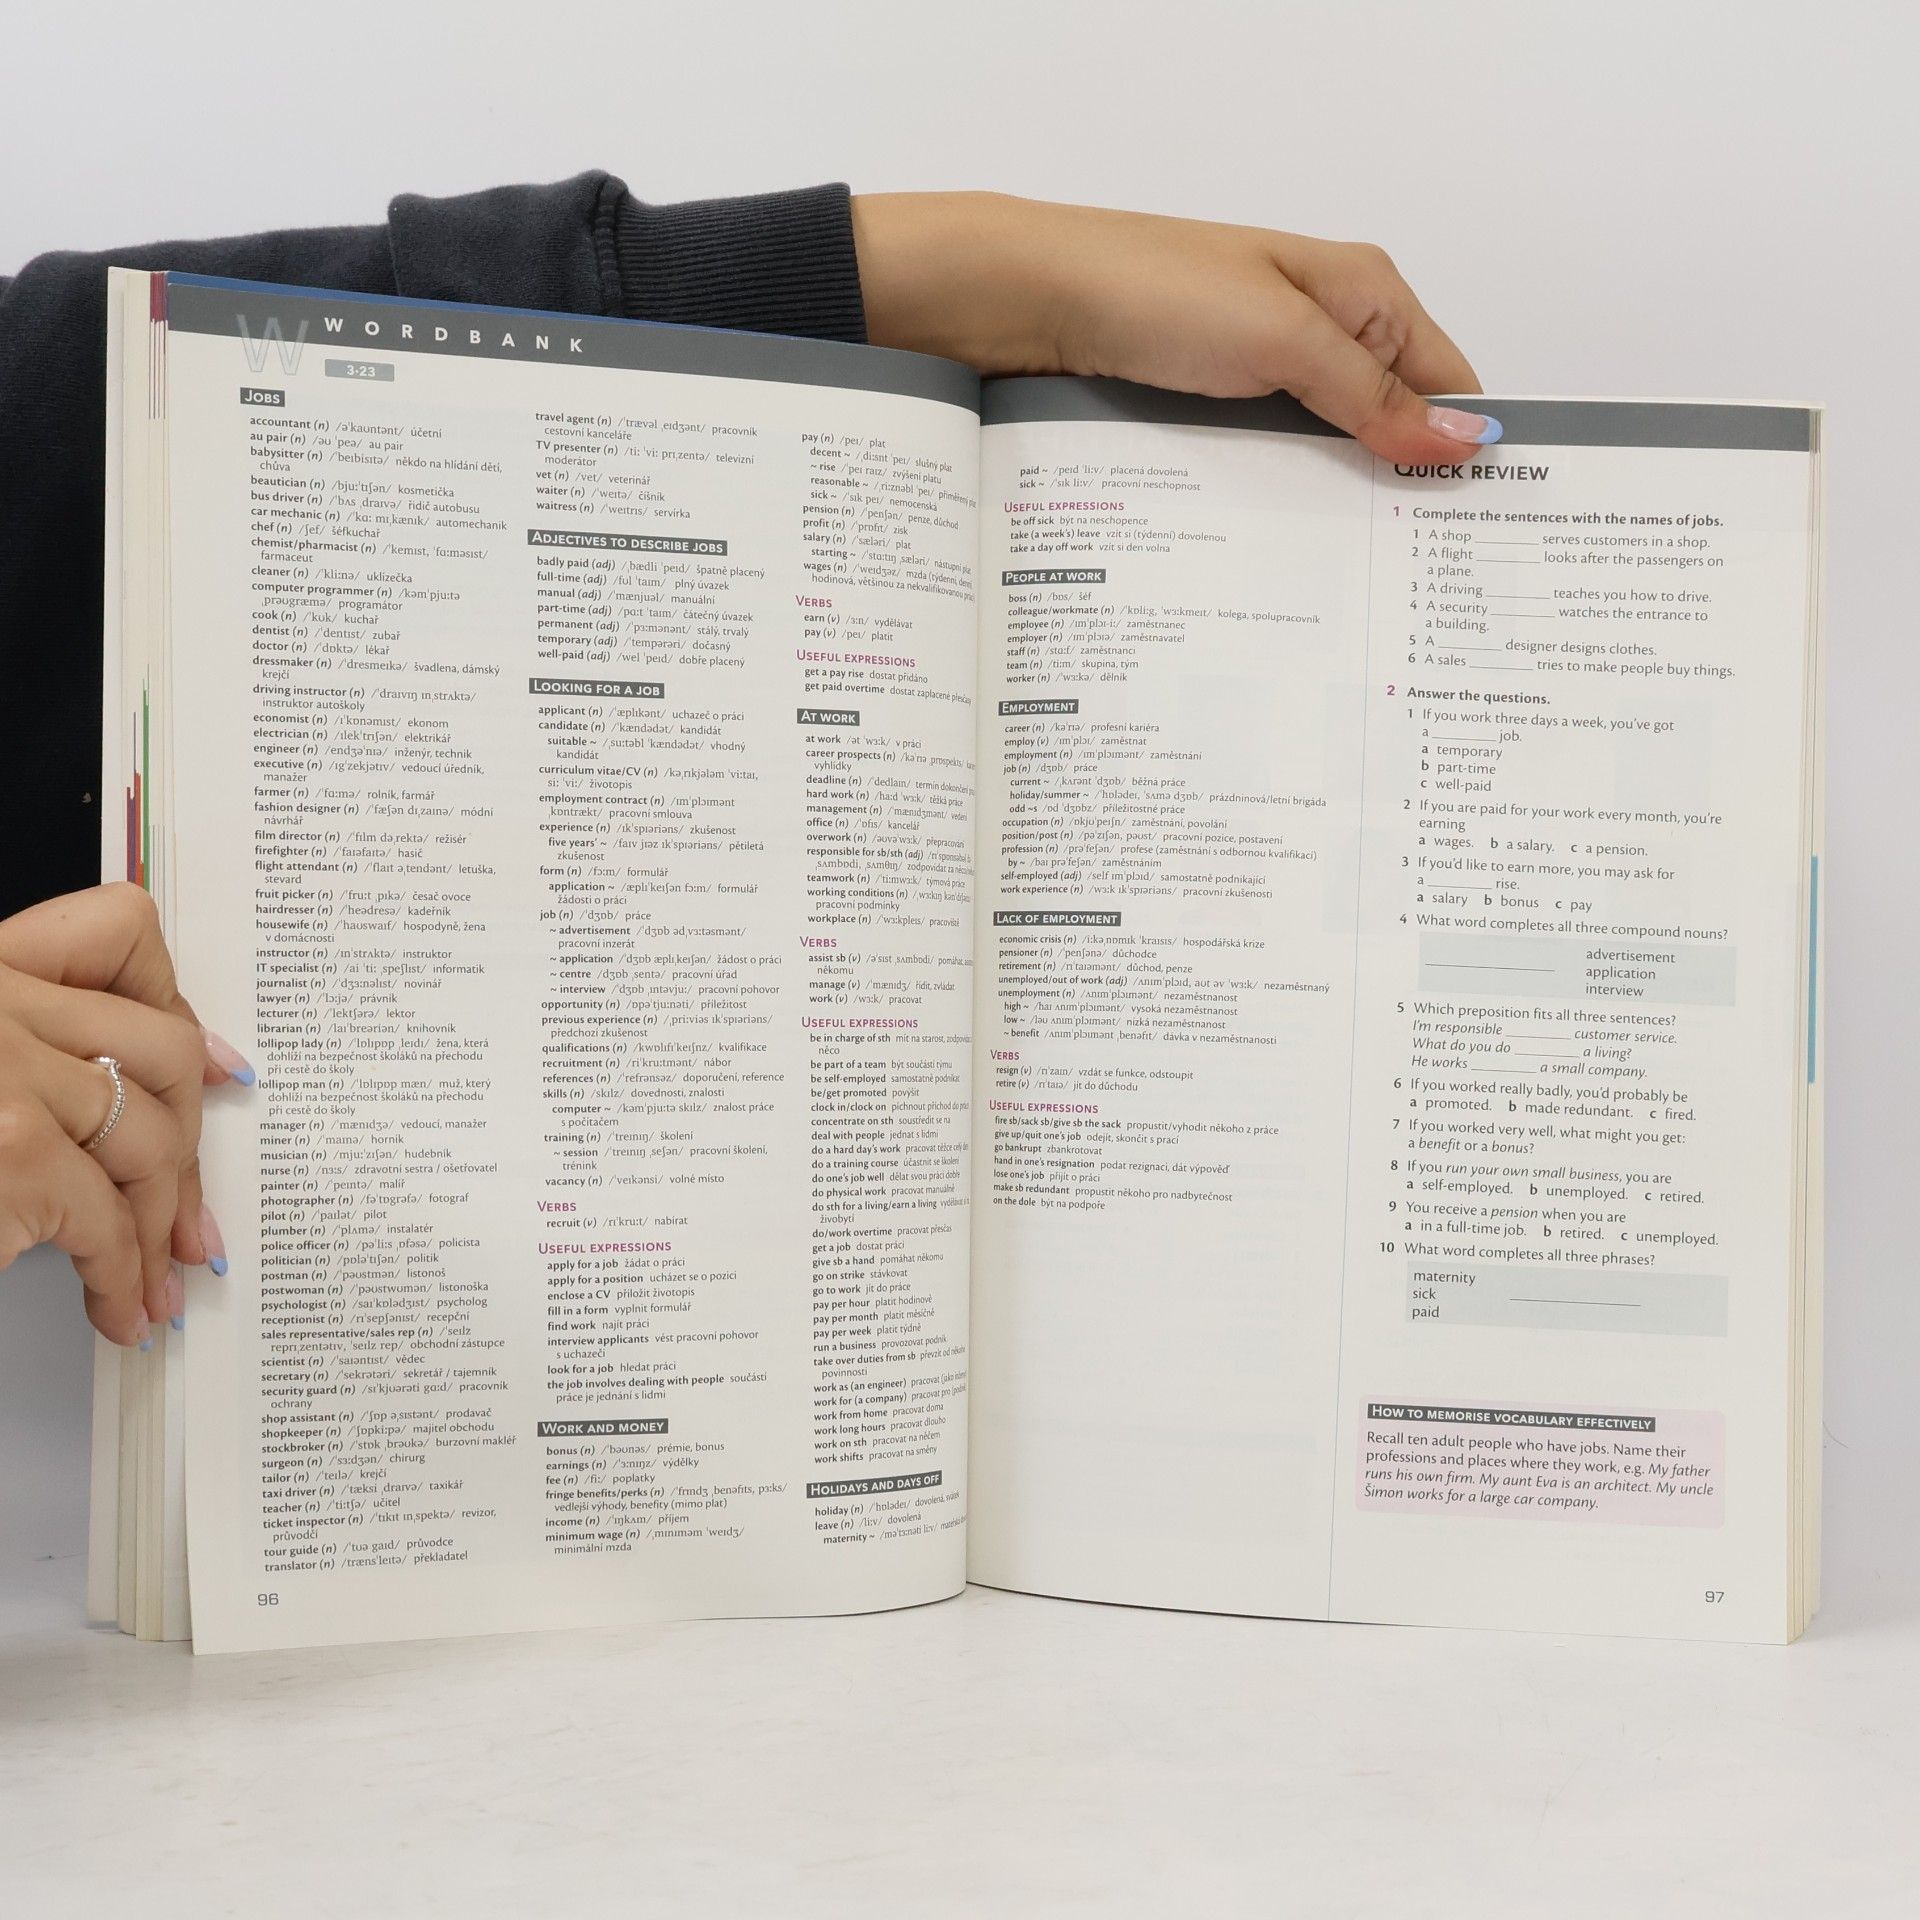 W WORDBANK
3·23
JOBS
accountant (n) /ə'kaʊntənt/ účetní
au pair (n) /əʊ 'peə/ au pair
babysitter (n) /'beɪbisɪtə/ někdo na hlídání dětí,
chůva
beautician (n) /bjuː'tɪʃən/ kosmetička
bus driver (n) /'bʌs ˌdraɪvə/ řidič autobusu
car mechanic (n) /'kɑː mɪˌkænɪk/ automechanik
chef (n) /ʃef/ šéfkuchař
chemist/pharmacist (n) /'kemɪst, 'fɑːməsɪst/
farmaceut
cleaner (n) /'kliːnə/ uklízečka
computer programmer (n) /kəm'pjuːtə
ˌprəʊgræmə/ programátor
cook (n) /'kʊk/ kuchař
dentist (n) /'dentɪst/ zubař
doctor (n) /'dɒktə/ lékař
dressmaker (n) /'dresmeɪkə/ švadlena, dámský
krejčí
driving instructor (n) /'draɪvɪŋ ɪnˌstrʌktə/
instruktor autoškoly
economist (n) /ɪ'kɒnəmɪst/ ekonom
electrician (n) /ɪlek'trɪʃən/ elektrikář
engineer (n) /endʒə'nɪə/ inženýr, technik
executive (n) /ɪg'zekjətɪv/ vedoucí úředník,
manažer
farmer (n) /'fɑːmə/ rolník, farmář
fashion designer (n) /'fæʃən dɪˌzaɪnə/ módní
návrhář
film director (n) /'fɪlm dəˌrektə/ režisér
firefighter (n) /'faɪəfaɪtə/ hasič
flight attendant (n) /'flaɪt əˌtendənt/ letuška,
stevard
fruit picker (n) /'fruːt ˌpɪkə/ česač ovoce
hairdresser (n) /'heədresə/ kadeřník
housewife (n) /'haʊswaɪf/ hospodyně, žena
v domácnosti
instructor (n) /ɪn'strʌktə/ instruktor
IT specialist (n) /aɪ 'tiː ˌspeʃlɪst/ informatik
journalist (n) /'dʒɜːnəlɪst/ novinář
lawyer (n) /'lɔːjə/ právník
lecturer (n) /'lektʃərə/ lektor
librarian (n) /laɪ'breəriən/ knihovník
lollipop lady (n) /'lɒlipɒp ˌleɪdi/ žena, která
dohlíží na bezpečnost školáků na přechodu
při cestě do školy
lollipop man (n) /'lɒlipɒp mæn/ muž, který
dohlíží na bezpečnost školáků na přechodu
při cestě do školy
manager (n) /'mænɪdʒə/ vedoucí, manažer
miner (n) /'maɪnə/ horník
musician (n) /mjuː'zɪʃən/ hudebník
nurse (n) /nɜːs/ zdravotní sestra / ošetřovatel
painter (n) /'peɪntə/ malíř
photographer (n) /fə'tɒgrəfə/ fotograf
pilot (n) /'paɪlət/ pilot
plumber (n) /'plʌmə/ instalatér
police officer (n) /pə'liːs ˌɒfəsə/ policista
politician (n) /pɒlə'tɪʃən/ politik
postman (n) /'pəʊstmən/ listonoš
postwoman (n) /'pəʊstwʊmən/ listonoška
psychologist (n) /saɪ'kɒlədʒɪst/ psycholog
receptionist (n) /rɪ'sepʃənɪst/ recepční
sales representative/sales rep (n) /'seɪlz
reprɪˌzentətɪv, 'seɪlz rep/ obchodní zástupce
scientist (n) /'saɪəntɪst/ vědec
secretary (n) /'sekrətəri/ sekretář / tajemník
security guard (n) /sɪ'kjʊərəti gɑːd/ pracovník
ochrany
shop assistant (n) /'ʃɒp əˌsɪstənt/ prodavač
shopkeeper (n) /'ʃɒpkiːpə/ majitel obchodu
stockbroker (n) /'stɒkˌbrəʊkə/ burzovní makléř
surgeon (n) /'sɜːdʒən/ chirurg
tailor (n) /'teɪlə/ krejčí
taxi driver (n) /'tæksi ˌdraɪvə/ taxikář
teacher (n) /'tiːtʃə/ učitel
ticket inspector (n) /'tɪkɪt ɪnˌspektə/ revizor,
průvodčí
tour guide (n) /'tʊə gaɪd/ průvodce
translator (n) /træns'leɪtə/ překladatel
travel agent (n) /'trævəl ˌeɪdʒənt/ pracovník
cestovní kanceláře
TV presenter (n) /tiː 'viː prɪˌzentə/ televizní
moderátor
vet (n) /vet/ veterinář
waiter (n) /'weɪtə/ číšník
waitress (n) /'weɪtrɪs/ servírka
ADJECTIVES TO DESCRIBE JOBS
badly paid (adj) /ˌbædli 'peɪd/ špatně placený
full-time (adj) /fʊl 'taɪm/ plný úvazek
manual (adj) /'mænjuəl/ manuální
part-time (adj) /pɑːt 'taɪm/ částečný úvazek
permanent (adj) /'pɜːmənənt/ stálý, trvalý
temporary (adj) /'tempərəri/ dočasný
well-paid (adj) /wel 'peɪd/ dobře placený
LOOKING FOR A JOB
applicant (n) /'æplɪkənt/ uchazeč o práci
candidate (n) /'kændədət/ kandidát
suitable ~ /ˌsuːtəbl 'kændədət/ vhodný
kandidát
curriculum vitae/CV (n) /kəˌrɪkjələm 'viːtaɪ,
siː 'viː/ životopis
employment contract (n) /ɪm'plɔɪmənt
ˌkɒntrækt/ pracovní smlouva
experience (n) /ɪk'spɪəriəns/ zkušenost
five years' ~ /faɪv jɪəz ɪk'spɪəriəns/ pětiletá
zkušenost
form (n) /fɔːm/ formulář
application ~ /æplɪ'keɪʃən fɔːm/ formulář
žádosti o práci
job (n) /'dʒɒb/ práce
~ advertisement /'dʒɒb ədˌvɜːtəsmənt/
pracovní inzerát
~ application /'dʒɒb æplɪˌkeɪʃən/ žádost o práci
~ centre /dʒɒb ˌsentə/ pracovní úřad
~ interview /'dʒɒb ˌɪntəvjuː/ pracovní pohovor
opportunity (n) /ɒpə'tjuːnəti/ příležitost
previous experience (n) /ˌpriːviəs ɪk'spɪəriəns/
předchozí zkušenost
qualifications (n) /kwɒlɪfɪ'keɪʃnz/ kvalifikace
recruitment (n) /rɪ'kruːtmənt/ nábor
references (n) /'refrənsəz/ doporučení, reference
skills (n) /skɪlz/ dovednosti, znalosti
computer ~ /kəm'pjuːtə skɪlz/ znalost práce
s počítačem
training (n) /'treɪnɪŋ/ školení
~ session /'treɪnɪŋ ˌseʃən/ pracovní školení,
trénink
vacancy (n) /'veɪkənsi/ volné místo
VERBS
recruit (v) /rɪ'kruːt/ nabírat
USEFUL EXPRESSIONS
apply for a job žádat o práci
apply for a position ucházet se o pozici
enclose a CV přiložit životopis
fill in a form vyplnit formulář
find work najít práci
interview applicants vést pracovní pohovor
s uchazeči
look for a job hledat práci
the job involves dealing with people součástí
práce je jednání s lidmi
WORK AND MONEY
bonus (n) /'bəʊnəs/ prémie, bonus
earnings (n) /'ɜːnɪŋz/ výdělky
fee (n) /fiː/ poplatky
fringe benefits/perks (n) /'frɪndʒ ˌbenəfɪts, pɜːks/
vedlejší výhody, benefity (mimo plat)
income (n) /'ɪŋkʌm/ příjem
minimum wage (n) /ˌmɪnɪməm 'weɪdʒ/
minimální mzda
pay (n) /peɪ/ plat
decent ~ /ˌdiːsnt 'peɪ/ slušný plat
~ rise /'peɪ raɪz/ zvýšení platu
reasonable ~ /ˌriːznəbl 'peɪ/ přiměřený
sick ~ /'sɪk peɪ/ nemocenská
pension (n) /'penʃən/ penze, důchod
profit (n) /'prɒfɪt/ zisk
salary (n) /'sæləri/ plat
starting ~ /'stɑːtɪŋ ˌsæləri/ nástupní
wages (n) /'weɪdʒəz/ mzda (týdenní, denní,
hodinová, většinou za nekvalifikovanou
VERBS
earn (v) /ɜːn/ vydělávat
pay (v) /peɪ/ platit
USEFUL EXPRESSIONS
get a pay rise dostat přidáno
get paid overtime dostat zaplacené přesčasy
AT WORK
at work /ət 'wɜːk/ v práci
career prospects (n) /kə'rɪə ˌprɒspekts/
vyhlídky
deadline (n) /'dedlaɪn/ termín dokončení
hard work (n) /hɑːd 'wɜːk/ těžká práce
management (n) /'mænɪdʒmənt/ vedení
office (n) /'ɒfɪs/ kancelář
overwork (n) /əʊvə'wɜːk/ přepracování
responsible for sb/sth (adj)
ˌsʌmbɒdi, ˌsʌmθɪŋ/ zodpovídat za
teamwork (n) /'tiːmwɜːk/ týmová práce
working conditions (n)
pracovní podmínky
workplace (n) /'wɜːkpleɪs/ pracoviště
VERBS
assist sb (v) /ə'sɪst ˌsʌmbɒdi/ pomáhat,
někomu
manage (v) /'mænɪdʒ/ řídit, zvládat
work (v) /wɜːk/ pracovat
USEFUL EXPRESSIONS
be in charge of sth mít na starost,
něco
be part of a team být součástí týmu
be self-employed samostatně podnikat
be/get promoted povýšit
clock in/clock on píchnout příchod do
concentrate on sth soustředit se na
deal with people jednat s lidmi
do a hard day's work pracovat těžce celý den
do a training course účastnit se školení
do one's job well dělat svou práci dobře
do physical work pracovat manuálně
do sth for a living/earn a living vydělávat
živobytí
do/work overtime pracovat přesčas
get a job dostat práci
give sb a hand pomáhat někomu
go on strike stávkovat
go to work jít do práce
pay per hour platit hodinově
pay per month platit měsíčně
pay per week platit týdně
run a business provozovat podnik
take over duties from sb převzít od někoho
povinnosti
work as (an engineer) pracovat (jako
work for (a company) pracovat pro
work from home pracovat doma
work long hours pracovat dlouho
work on sth pracovat na něčem
work shifts pracovat na směny
HOLIDAYS AND DAYS OFF
holiday (n) /'hɒlədeɪ/ dovolená, svátek
leave (n) /liːv/ dovolená
maternity ~ /mə'tɜːnəti liːv/
96
paid ~ /peɪd 'liːv/ placená dovolená
sick ~ /'sɪk liːv/ pracovní neschopnost
USEFUL EXPRESSIONS
be off sick být na neschopence
take (a week's) leave vzít si (týdenní) dovolenou
take a day off work vzít si den volna
PEOPLE AT WORK
boss (n) /bɒs/ šéf
colleague/workmate (n) /'kɒliːg, 'wɜːkmeɪt/ kolega, spolupracovník
employee (n) /ɪm'plɔɪ-iː/ zaměstnanec
employer (n) /ɪm'plɔɪə/ zaměstnavatel
staff (n) /stɑːf/ zaměstnanci
team (n) /tiːm/ skupina, tým
worker (n) /'wɜːkə/ dělník
EMPLOYMENT
career (n) /kə'rɪə/ profesní kariéra
employ (v) /ɪm'plɔɪ/ zaměstnat
employment (n) /ɪm'plɔɪmənt/ zaměstnání
job (n) /dʒɒb/ práce
current ~ /ˌkʌrənt 'dʒɒb/ běžná práce
holiday/summer ~ /'hɒlədeɪ, 'sʌmə dʒɒb/ prázdninová/letní brigáda
odd ~s /ɒd 'dʒɒbz/ příležitostné práce
occupation (n) /ɒkju'peɪʃn/ zaměstnání, povolání
position/post (n) /pə'zɪʃən, pəʊst/ pracovní pozice, postavení
profession (n) /prə'feʃən/ profese (zaměstnání s odbornou kvalifikací)
by ~ /baɪ prə'feʃən/ zaměstnáním
self-employed (adj) /self ɪm'plɔɪd/ samostatně podnikající
work experience (n) /wɜːk ɪk'spɪəriəns/ pracovní zkušenosti
LACK OF EMPLOYMENT
economic crisis (n) /iːkəˌnɒmɪk 'kraɪsɪs/ hospodářská krize
pensioner (n) /'penʃənə/ důchodce
retirement (n) /rɪ'taɪəmənt/ důchod, penze
unemployed/out of work (adj) /ʌnɪm'plɔɪd, aʊt əv 'wɜːk/ nezaměstnaný
unemployment (n) /ʌnɪm'plɔɪmənt/ nezaměstnanost
high ~ /haɪ ʌnɪm'plɔɪmənt/ vysoká nezaměstnanost
low ~ /ləʊ ʌnɪm'plɔɪmənt/ nízká nezaměstnanost
~ benefit /ʌnɪm'plɔɪmənt ˌbenəfɪt/ dávka v nezaměstnanosti
VERBS
resign (v) /rɪ'zaɪn/ vzdát se funkce, odstoupit
retire (v) /rɪ'taɪə/ jít do důchodu
USEFUL EXPRESSIONS
fire sb/sack sb/give sb the sack propustit/vyhodit někoho z práce
give up/quit one's job odejít, skončit s prací
go bankrupt zbankrotovat
hand in one's resignation podat rezignaci, dát výpověď
lose one's job přijít o práci
make sb redundant propustit někoho pro nadbytečnost
on the dole být na podpoře
QUICK REVIEW
1 Complete the sentences with the names of jobs.
1 A shop ________ serves customers in a shop.
2 A flight ________ looks after the passengers on
a plane.
3 A driving ________ teaches you how to drive.
4 A security ________ watches the entrance to
a building.
5 A ________ designer designs clothes.
6 A sales ________ tries to make people buy things.
2 Answer the questions.
1 If you work three days a week, you've got
a ________ job.
a temporary
b part-time
c well-paid
2 If you are paid for your work every month, you're
earning
a wages. b a salary. c a pension.
3 If you'd like to earn more, you may ask for
a ________ rise.
a salary b bonus c pay
4 What word completes all three compound nouns?
advertisement
________ application
interview
5 Which preposition fits all three sentences?
I'm responsible ________ customer service.
What do you do ________ a living?
He works ________ a small company.
6 If you worked really badly, you'd probably be
a promoted. b made redundant. c fired.
7 If you worked very well, what might you get:
a benefit or a bonus?
8 If you run your own small business, you are
a self-employed. b unemployed. c retired.
9 You receive a pension when you are
a in a full-time job. b retired. c unemployed.
10 What word completes all three phrases?
maternity
sick ________
paid
HOW TO MEMORISE VOCABULARY EFFECTIVELY
Recall ten adult people who have jobs. Name their
professions and places where they work, e.g. My father
runs his own firm. My aunt Eva is an architect. My uncle
Šimon works for a large car company.
97